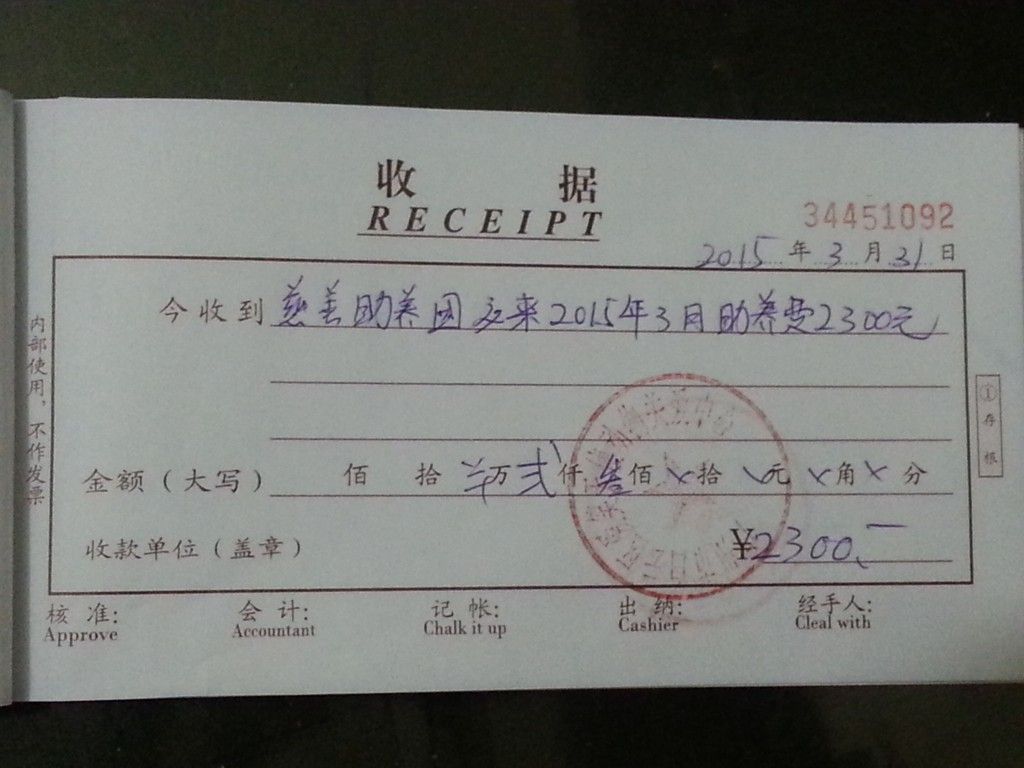 收 据
RECEIPT
34451092
2015年3月31日
今收到 慈善助养团 来2015年3月助养费2300元
金额（大写） 佰 拾 万 贰仟 叁佰 拾 元 角 分
收款单位（盖章） ¥2300.—
核 准: 会 计: 记 帐: 出 纳: 经手人:
Approve Accountant Chalk it up Cashier Cleal with
内部使用，不作发票
①存根